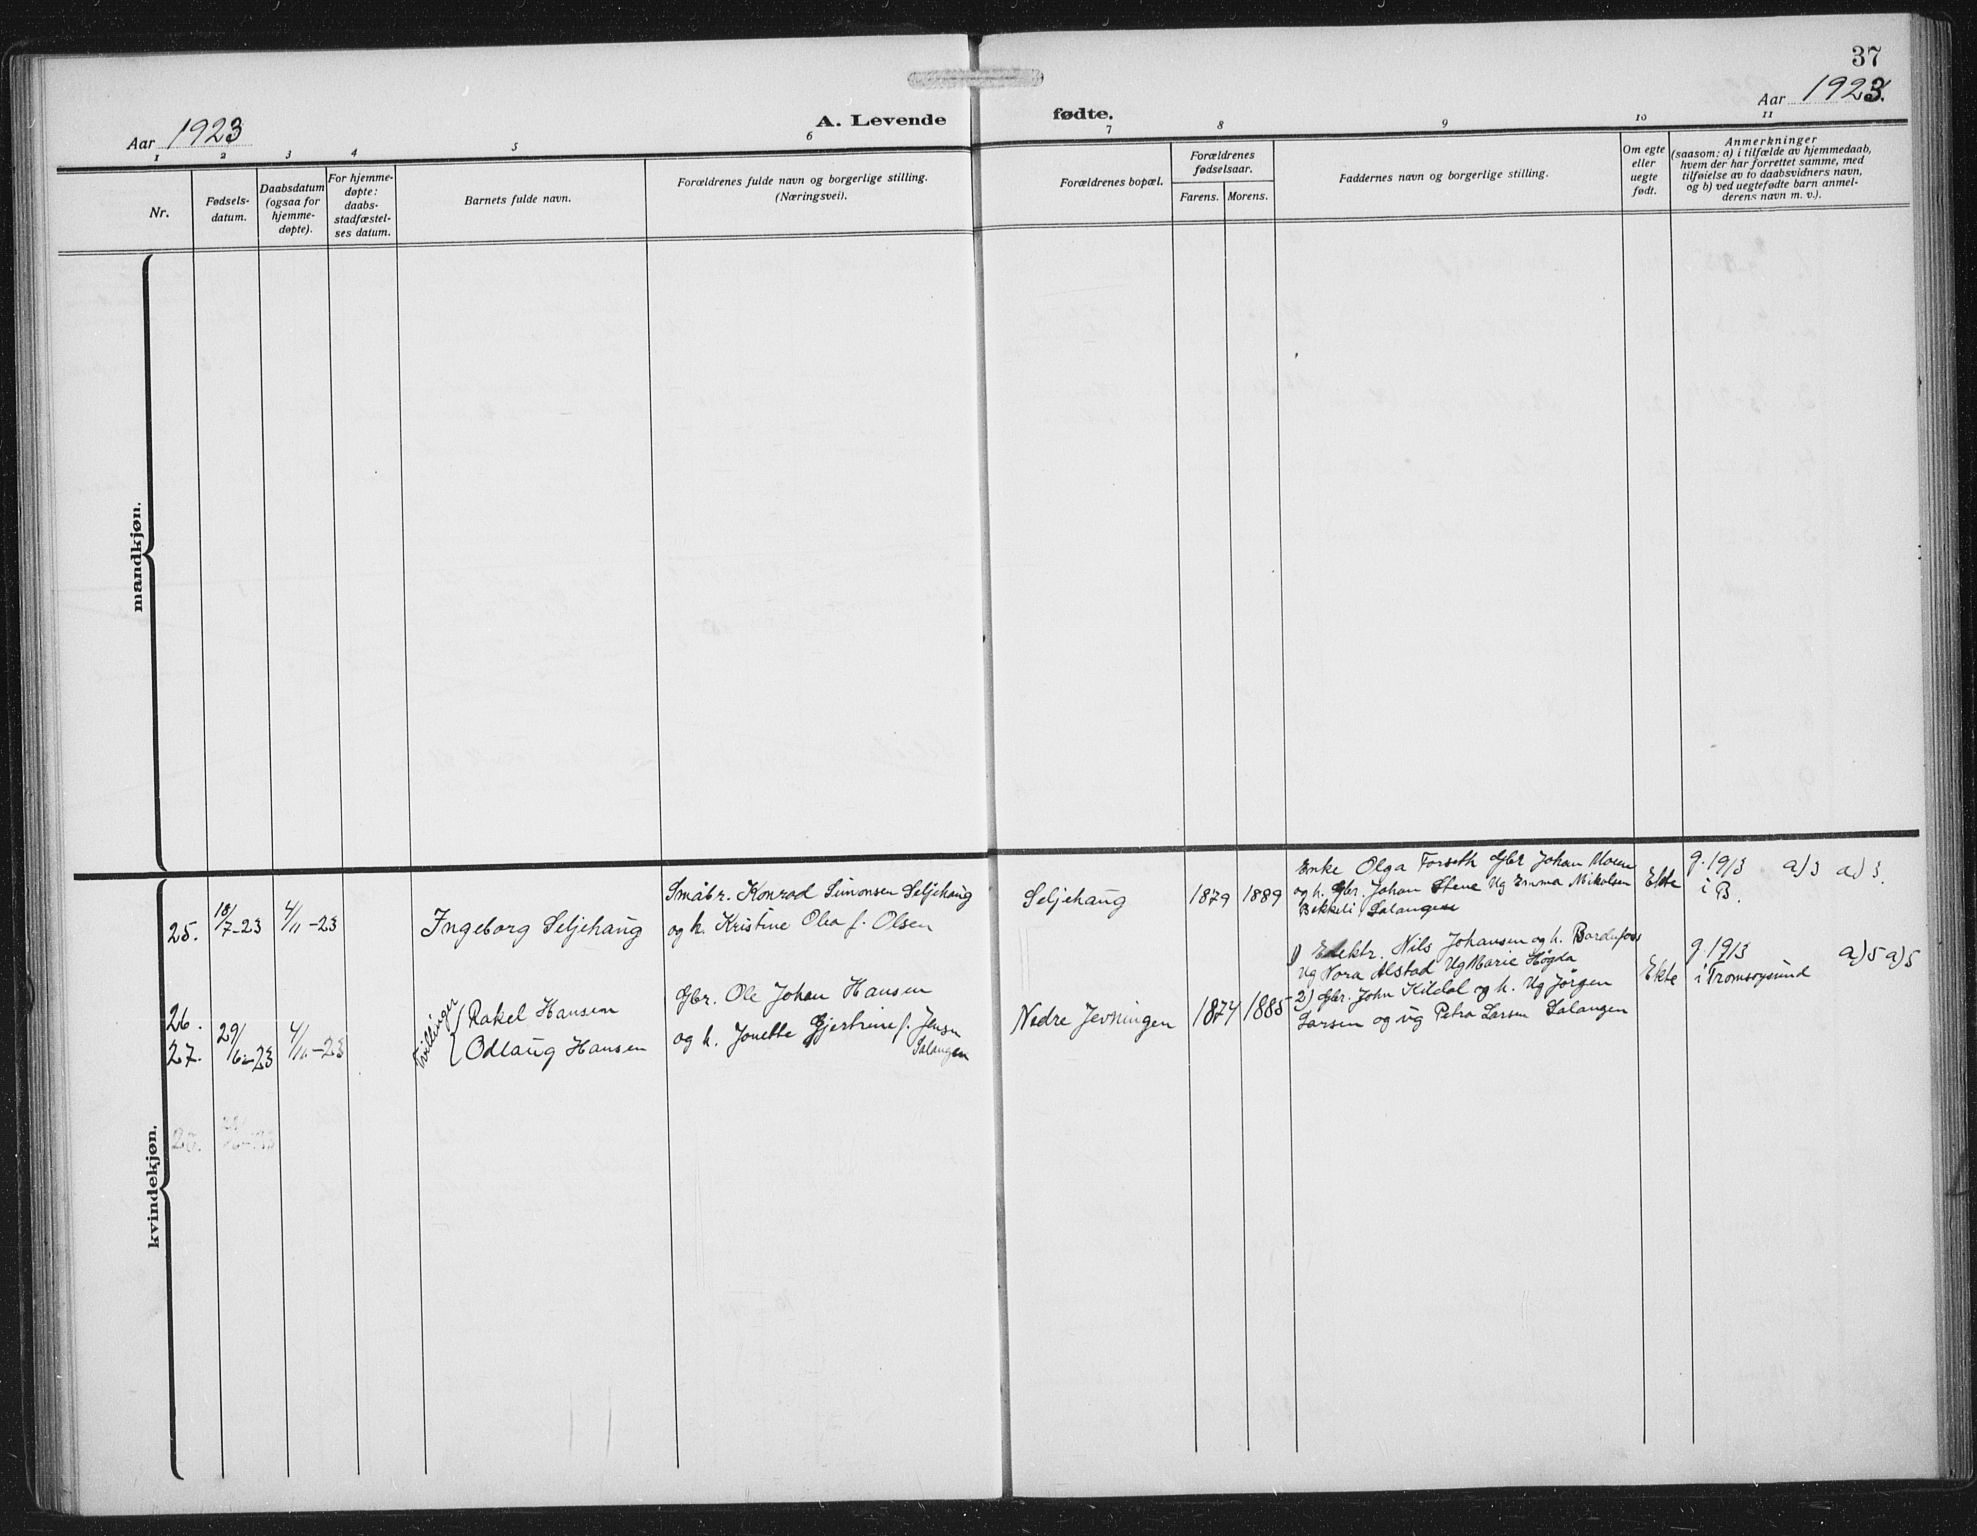 37
Aar 1923
A. Levende fødte.
Aar 1923.
1 2 3 4 5 6 7 8 9 10 11
Nr.
Fødsels-
datum.
Daabsdatum
(ogsaa for
hjemme-
døpte).
For hjemme-
døpte:
daabs-
stadfæstel-
ses datum.
Barnets fulde navn.
Forældrenes fulde navn og borgerlige stilling.
(Næringsvei).
Forældrenes bopæl.
Forældrenes
fødselsaar.
Farens. Morens.
Faddernes navn og borgerlige stilling.
Om egte
eller
uegte
født.
Anmerkninger
(saasom: a) i tilfælde av hjemmedaab,
hvem der har forrettet samme, med
tilføielse av to daabsvidners navn,
og b) ved uegtefødte barn anmel-
derens navn m. v.).
mandkjøn.
kvindekjøn.
25.
18/7-23
4/11-23
Ingeborg Seljehaug
Småbr. Konrad Simonsen Seljehaug
og h. Kristine Olea f. Olsen
Seljehaug
1879
1889
Enke Olga Forseth Gbr Johan Moene
og h. Gbr. Johan Stene Ug Emma Nikolsen
Bekkeli Salangen
Ekte
g. 19/3 a)3 a)3.
i B.
26.
27.
29/6-23
4/11-23
Tvillinger
Rakel Hansen
Odlaug Hansen
Gbr. Ole Johan Hansen
og h. Jonette Gjertrine f. Jensen
Salangen
Nedre Jevningen
1874
1885
1) Elektr. Nils Johansen og h. Bardufoss
Ug Nora Alstad Ug Marie Høgda
2) Gbr. John Kildal og h. Ug Jørgen
Larsen og ug Petra Larsen Salangen
Ekte
g. 19/3 a)5 a)5
i Tromsøysund